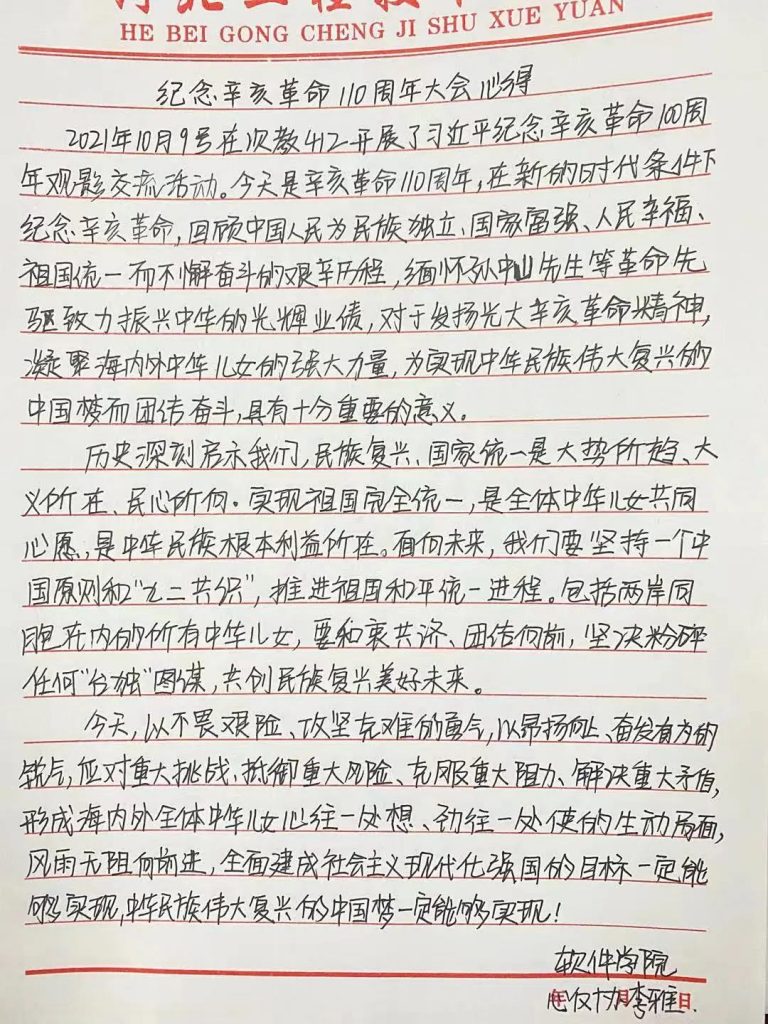 HE BEI GONG CHENG JI SHU XUE YUAN
纪念辛亥革命110周年大会心得
2021年10月9号在次教412开展了习近平纪念辛亥革命100周
年观影交流活动。今天是辛亥革命110周年,在新的时代条件下
纪念辛亥革命,回顾中国人民为民族独立、国家富强、人民幸福、
祖国统一而不懈奋斗的艰辛历程,缅怀孙中山先生等革命先
驱致力振兴中华的光辉业绩,对于发扬光大辛亥革命精神,
凝聚海内外中华儿女的强大力量,为实现中华民族伟大复兴的
中国梦而团结奋斗,具有十分重要的意义。
历史深刻启示我们,民族复兴、国家统一是大势所趋、大
义所在、民心所向.实现祖国完全统一,是全体中华儿女共同
心愿,是中华民族根本利益所在。面向未来,我们要坚持一个中
国原则和“九二共识”,推进祖国和平统一进程。包括两岸同
胞在内的所有中华儿女,要和衷共济、团结向前,坚决粉碎
任何“台独”图谋,共创民族复兴美好未来。
今天,以不畏艰险、攻坚克难的勇气,以昂扬向上、奋发有为的
锐气,应对重大挑战、抵御重大风险、克服重大阻力、解决重大矛盾,
形成海内外全体中华儿女心往一处想、劲往一处使的生动局面,
风雨无阻向前进,全面建成社会主义现代化强国的目标一定能
够实现,中华民族伟大复兴的中国梦一定能够实现!
软件学院
李雅
日